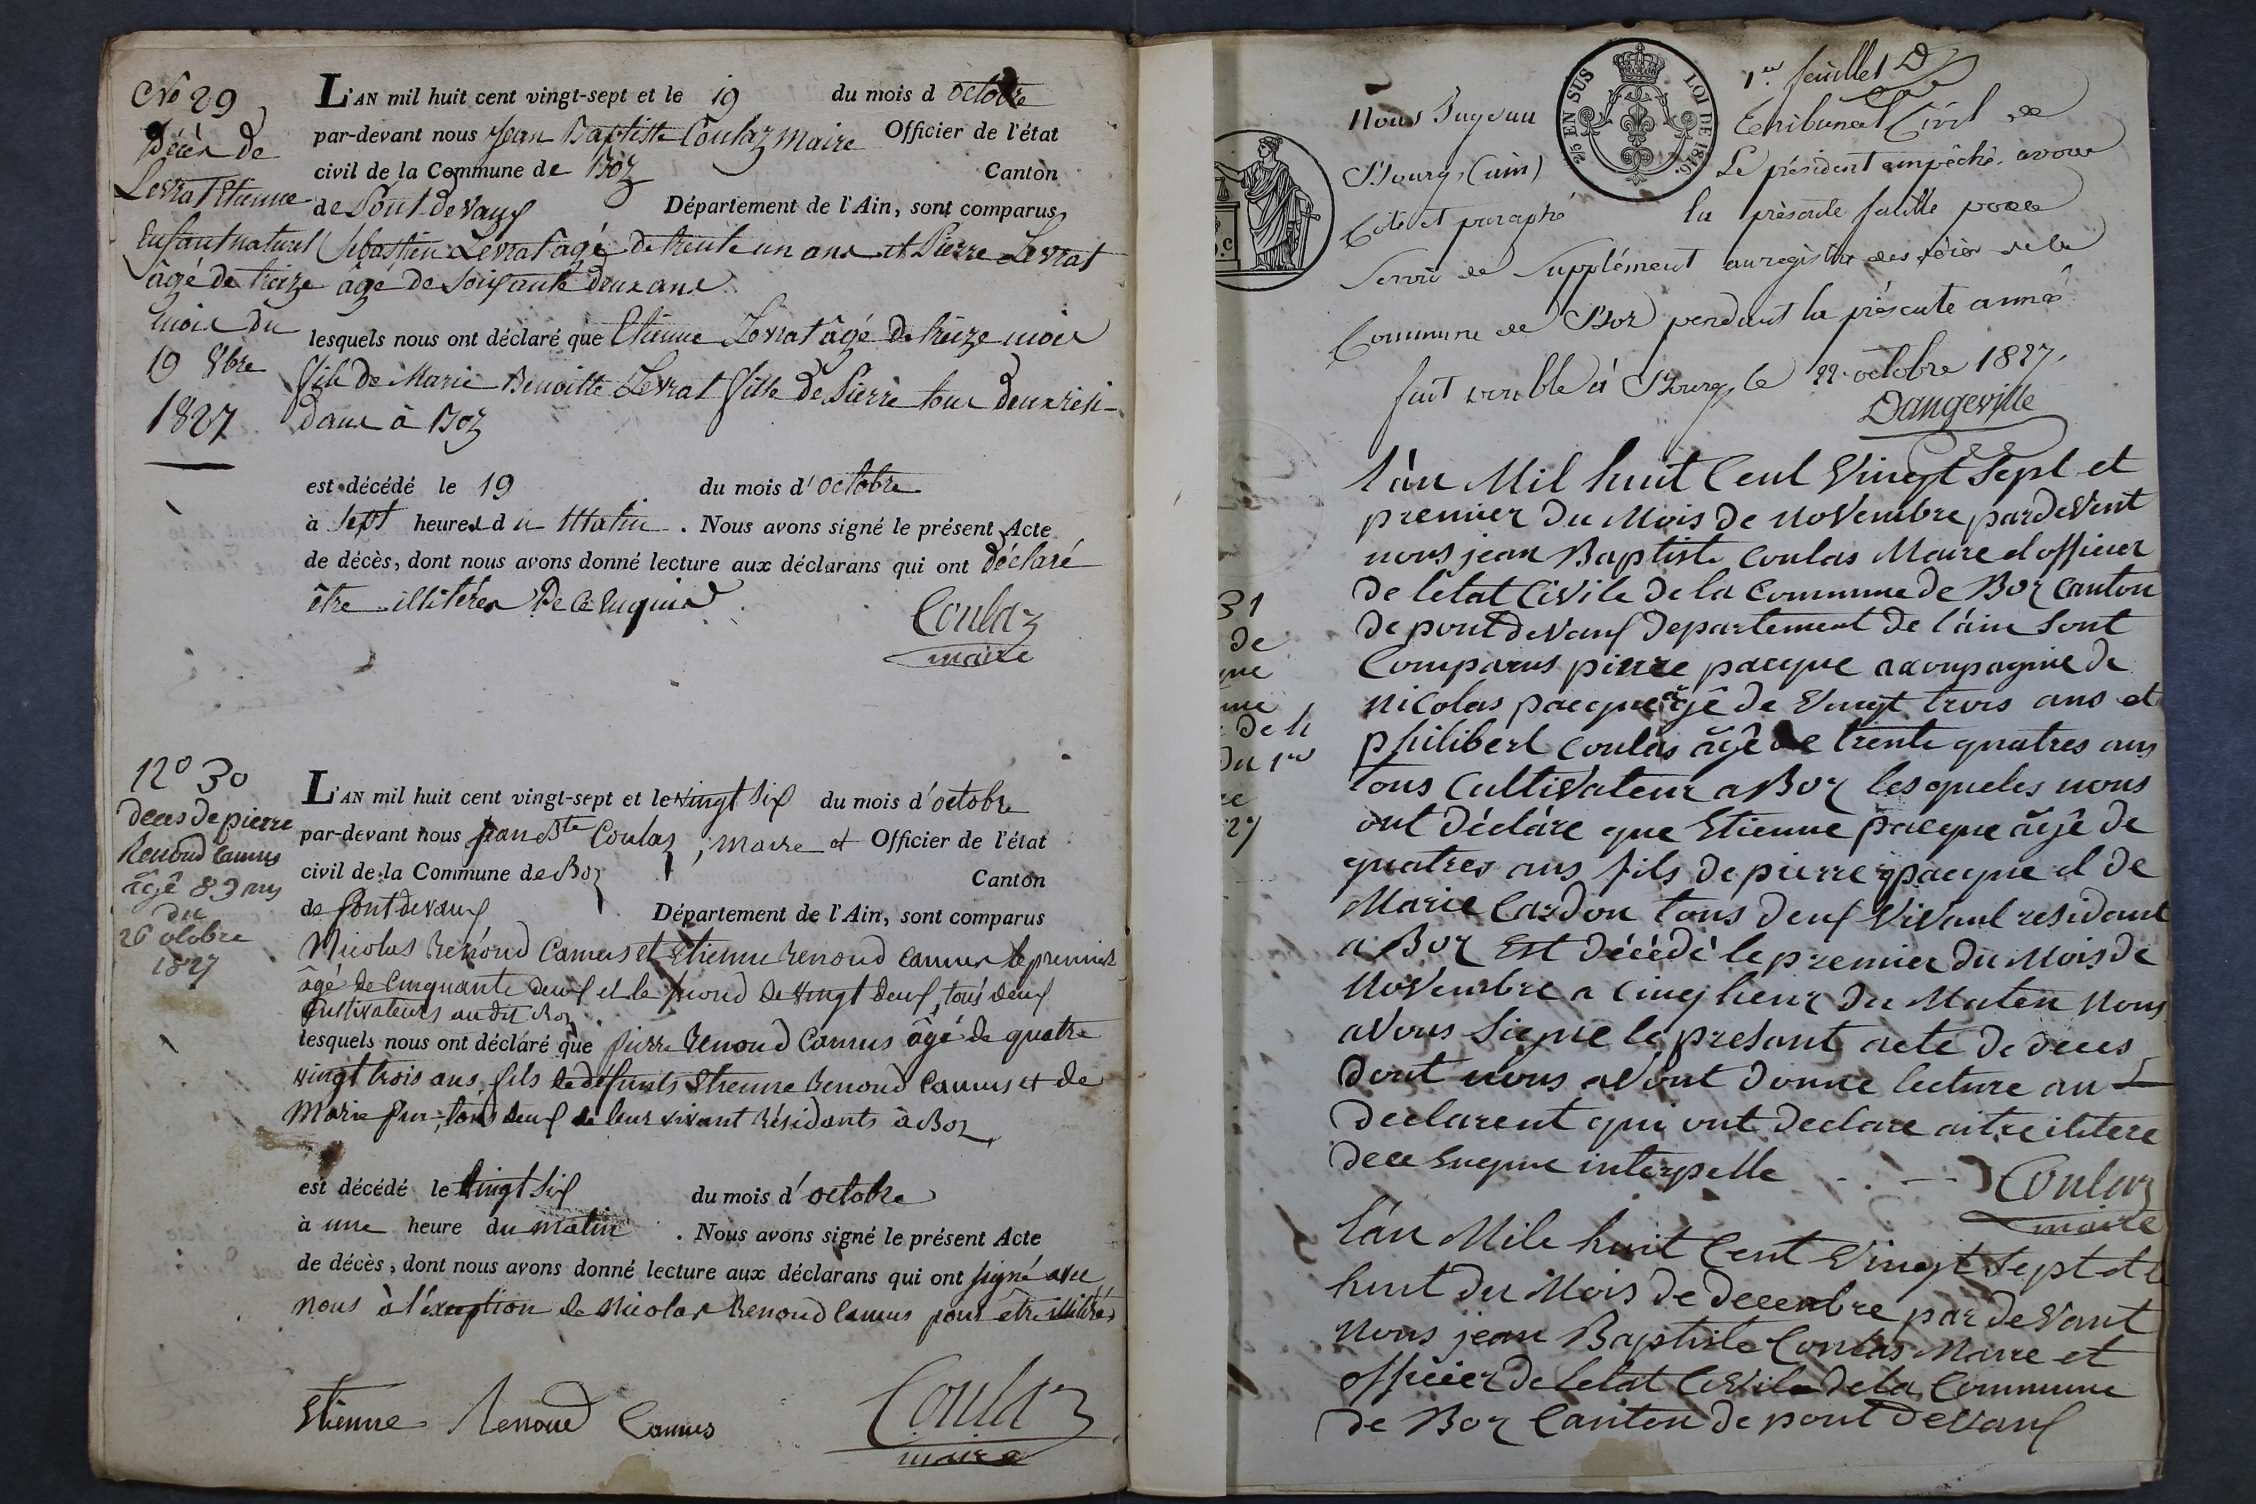 No 29
Décès de
Levrat Etienne
Enfant naturel
âgé de treize
mois du
19 8bre
1827
L'AN mil huit cent vingt-sept et le 19 du mois d octobre
par-devant nous Jean Baptiste Coulaz maire Officier de l'état
civil de la Commune de Boz Canton
de Pont de vaux Département de l'Ain, sont comparus
Sebastien Levrat âgé de trente un ans et Pierre Levrat
âgé de soixante deux ans
lesquels nous ont déclaré que Etienne Levrat âgé de treize mois
fils de Marie Benoitte Levrat fille de Pierre tous deux rési-
dans à Boz
est décédé le 19 du mois d'octobre
à sept heures du matin. Nous avons signé le présent Acte
de décès, dont nous avons donné lecture aux déclarans qui ont déclaré
être illitérés De ce Enquis
Coulaz
maire
n° 30
deces de pierre
Renoud Camus
âgé 83 ans
du
26 otobre
1827
L'AN mil huit cent vingt-sept et le vingt six du mois d'octobre
par-devant nous jean Bte Coulaz, maire et Officier de l'état
civil de la Commune de Boz Canton
de pont devaux Département de l'Ain, sont comparus
Nicolas Renoud Camus et Etienne Renoud Camus le premier
âgé de Cinquante deux et le second de vingt deux, tous deux
Cultivateurs au dit Boz
lesquels nous ont déclaré que pierre Renoud Camus âgé de quatre
vingt trois ans, fils de défunts Etienne Renoud Camus et de
Marie , tous deux de leur vivant Résidants à Boz
est décédé le vingt six du mois d'octobre
à une heure du matin. Nous avons signé le présent Acte
de décès, dont nous avons donné lecture aux déclarans qui ont signé avec
nous à l'éxception de Nicolas Renoud Camus pour être illitéré
Etienne Renoud Camus
Coulaz
maire
31
de
que
nne
de 4
du 1er
re
27
2/5 EN SUS LOI DE 1816.
1er feuillet
Nous Juge au Tribunal Civil de
Bourg (ain) Le président empêché, avons
Coté et paraphé la présente feuille pour
servir de supplément au registre des décès de la
Commune de Boz pendant la présente année
fait double à Bourg, le 22 octobre 1827.
Dangeville
l'àn Mil huit Cent Vingt Sept et
premier du Mois de Novembre pardevent
nous jean Baptiste Coulas Maire et officier
de l'état Civile de la Commune de Boz Canton
de pont de vaux departement de l'âin Sont
Comparus pierre pacque acompagnie de
nicolas pacque âgê de vingt trois ans et
philibert Coulas âgê de trente quatres ans
tous Cultivateur a Boz lesqueles nous
ont déclâre que Etienne pacque âgê de
quatres ans fils de pierre pacque et de
Marie Cardon tous deux vivant residant
a Boz Est décèdè le premier du Mois de
Novèmbre a Cinq heur du Maten Nous
avons Signie le presant acte de deces
dont nous avont donne lecture au
declarent qui ont declare aitre ilitere
de ce Enquie interpelle
Coulaz
maire
l'àn Mile huit Cent vingt Sept et le
huit du Mois de decembre par devant
Nous jean Baptiste Coulas Maire et
officier de l'etat Civile de la Commune
de Boz Canton de pont devaux